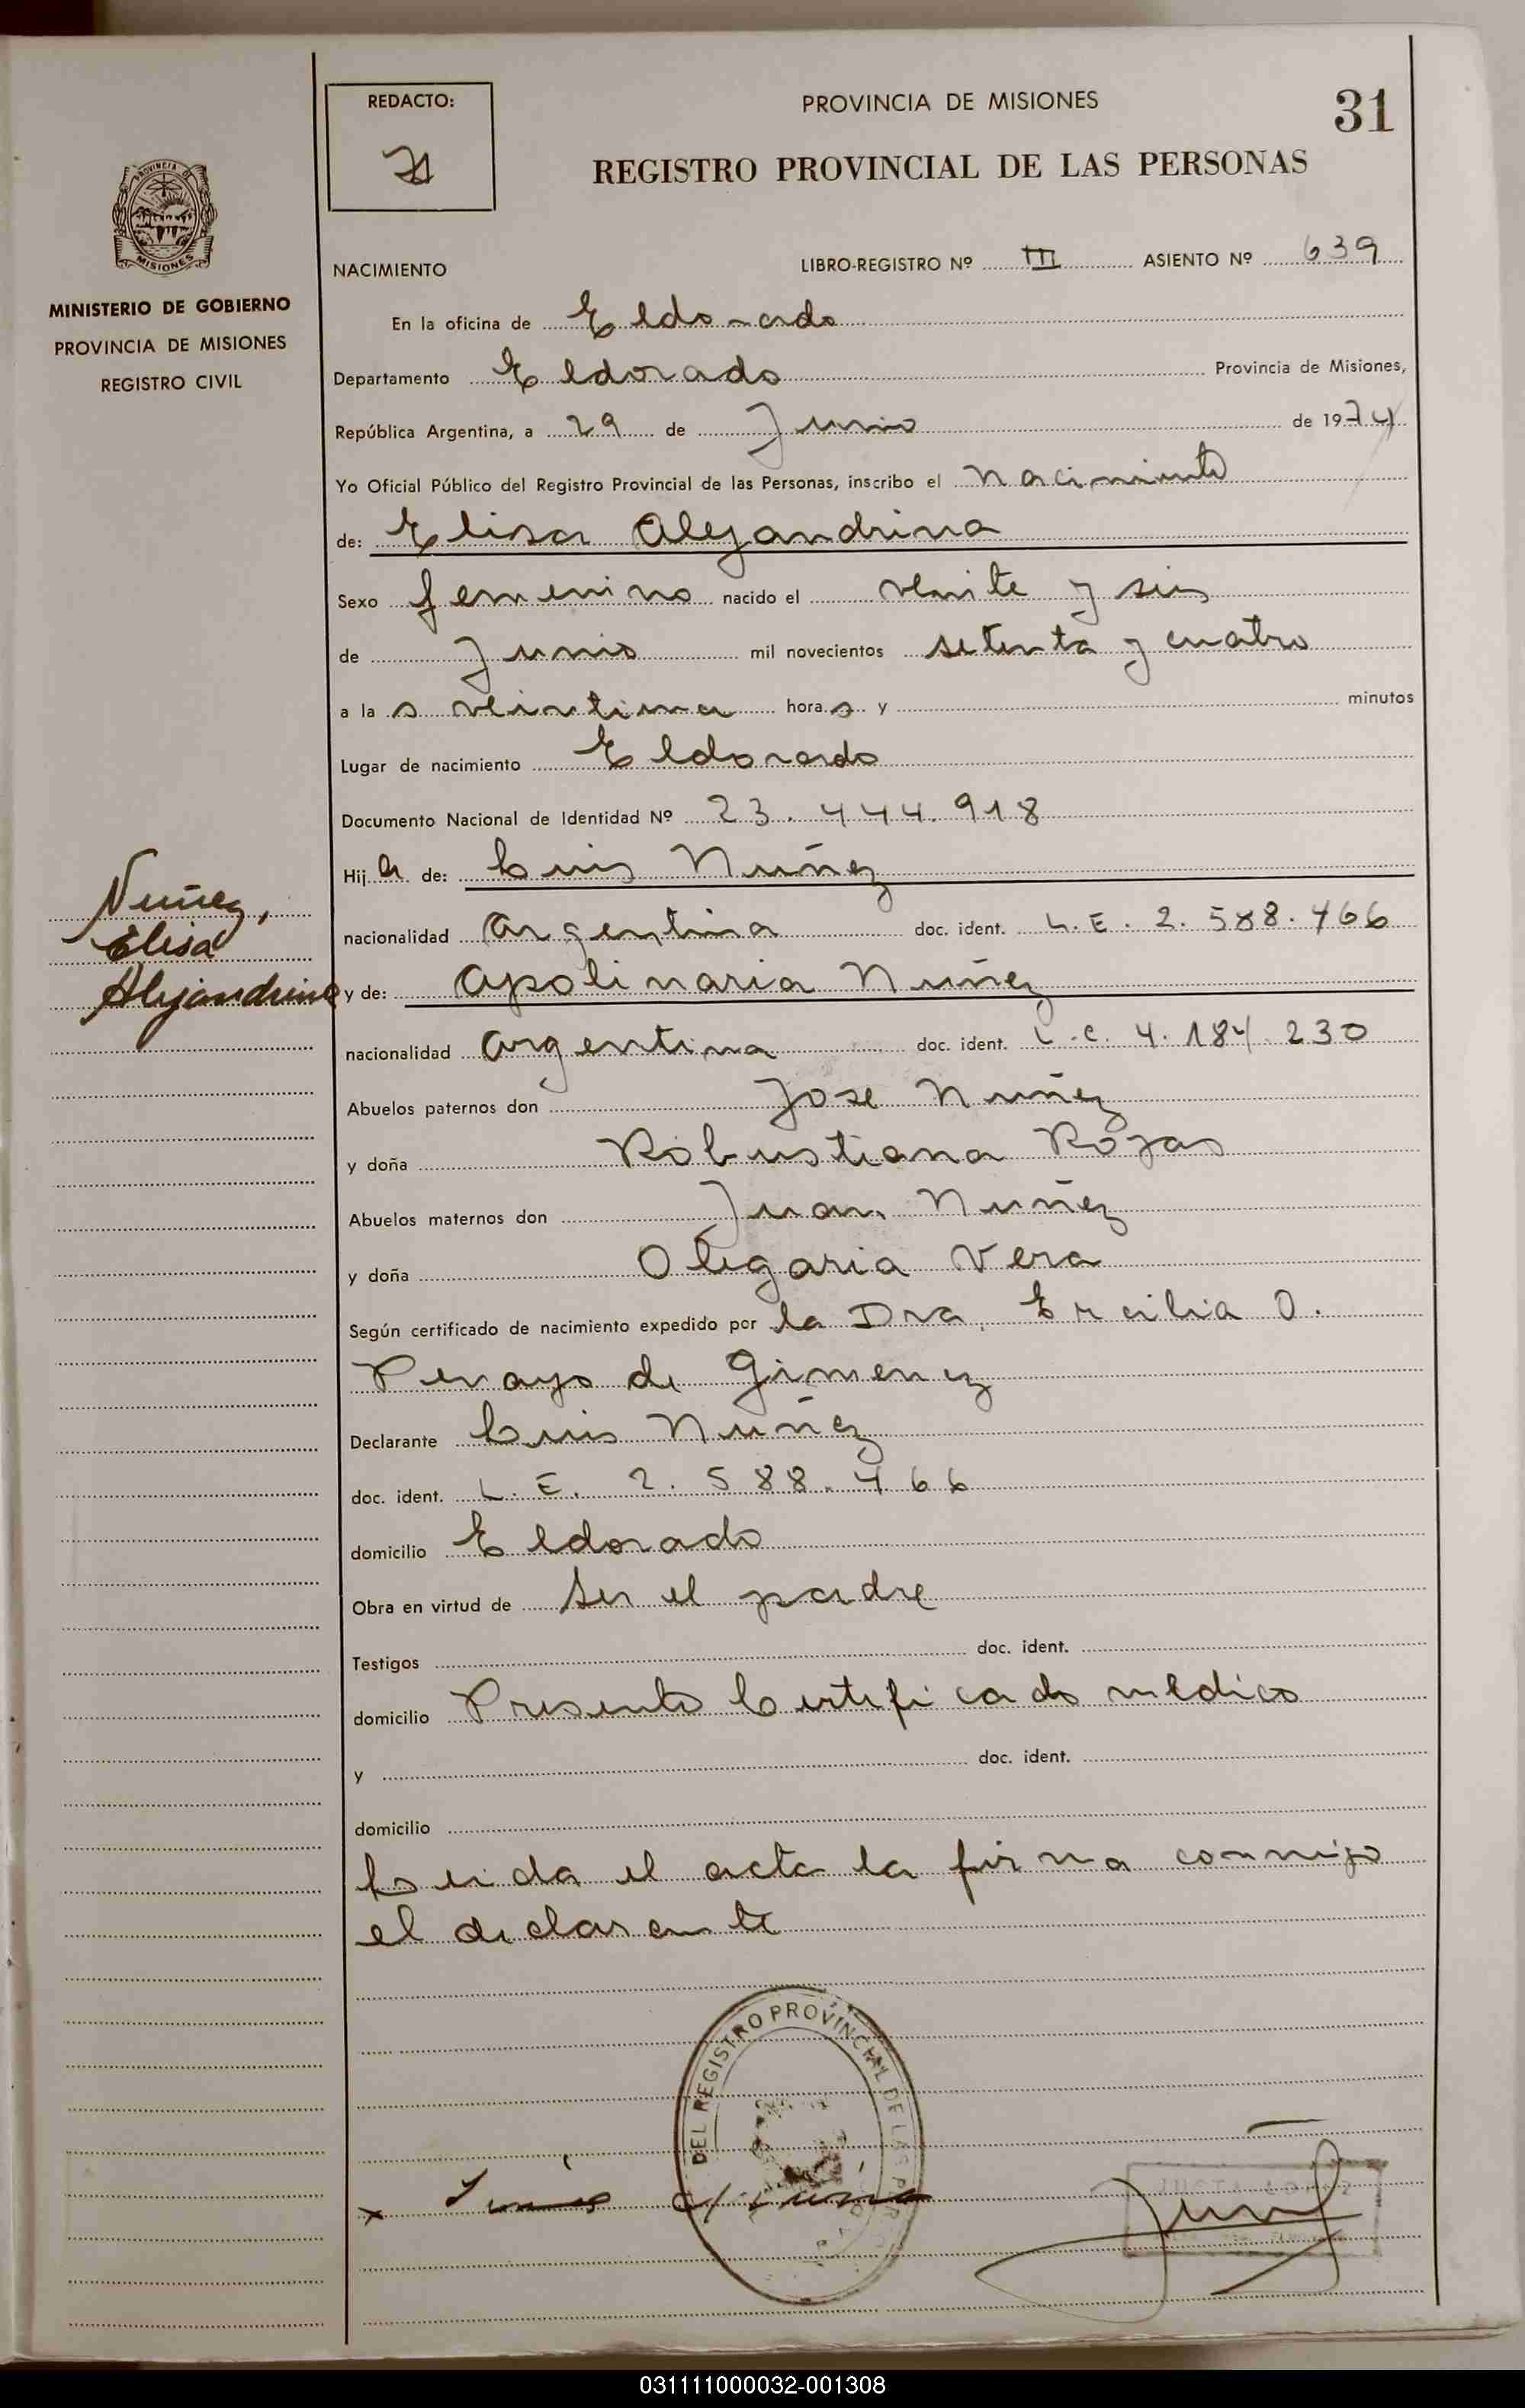 REDACTO:
PROVINCIA DE MISIONES
31
REGISTRO PROVINCIAL DE LAS PERSONAS
PROVINCIA DE
MISIONES
MINISTERIO DE GOBIERNO
PROVINCIA DE MISIONES
REGISTRO CIVIL
NACIMIENTO LIBRO-REGISTRO Nº III ASIENTO Nº 639
En la oficina de Eldorado
Departamento Eldorado Provincia de Misiones,
República Argentina, a 29 de Junio de 1974
Yo Oficial Público del Registro Provincial de las Personas, inscribo el nacimiento
de: Elisa Alejandrina
Sexo femenino nacido el veinte y seis
de Junio mil novecientos setenta y cuatro
a las veintiuna horas y minutos
Lugar de nacimiento Eldorado
Documento Nacional de Identidad Nº 23.444.918
Hija de: Luis Nuñez
nacionalidad argentina doc. ident. L.E. 2.588.466
Nuñez,
Elisa
Alejandrina
y de: Apolinaria Nuñez
nacionalidad argentina doc. ident. L.C. 4.184.230
Abuelos paternos don Jose Nuñez
y doña Robustiana Rojas
Abuelos maternos don Juan Nuñez
y doña Olegaria Vera
Según certificado de nacimiento expedido por la Dra. Ercilia O.
Penayo de Gimenez
Declarante Luis Nuñez
doc. ident. L.E. 2.588.466
domicilio Eldorado
Obra en virtud de ser el padre
Testigos doc. ident.
domicilio Presento Certificado medico
y doc. ident.
domicilio
Leida el acta la firma conmigo
el declarante
DEL REGISTRO PROVINCIAL DE LAS
x Luis
031111000032-001308